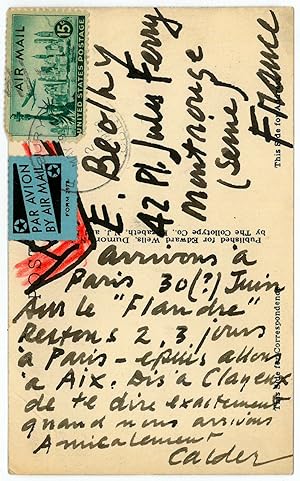 AIR MAIL
15¢
UNITED STATES POSTAGE
PAR AVION
BY AIR MAIL
FORM 2978
POST
E. Beöthy
42 Pl. Jules Ferry
Montrouge
(Seine)
France
This Side for
Published for Edward Wells, Dumont
by The Collotype Co., Elizabeth, N. J. and
This Side for Correspondence
Arrivons à
Paris 30(?) Juin
sur le "Flandre"
Restons 2, 3 jours
à Paris - epuis allons
à Aix. Dis à Clayeux
de te dire exactement
quand nous arrivons
Amicalement
Calder